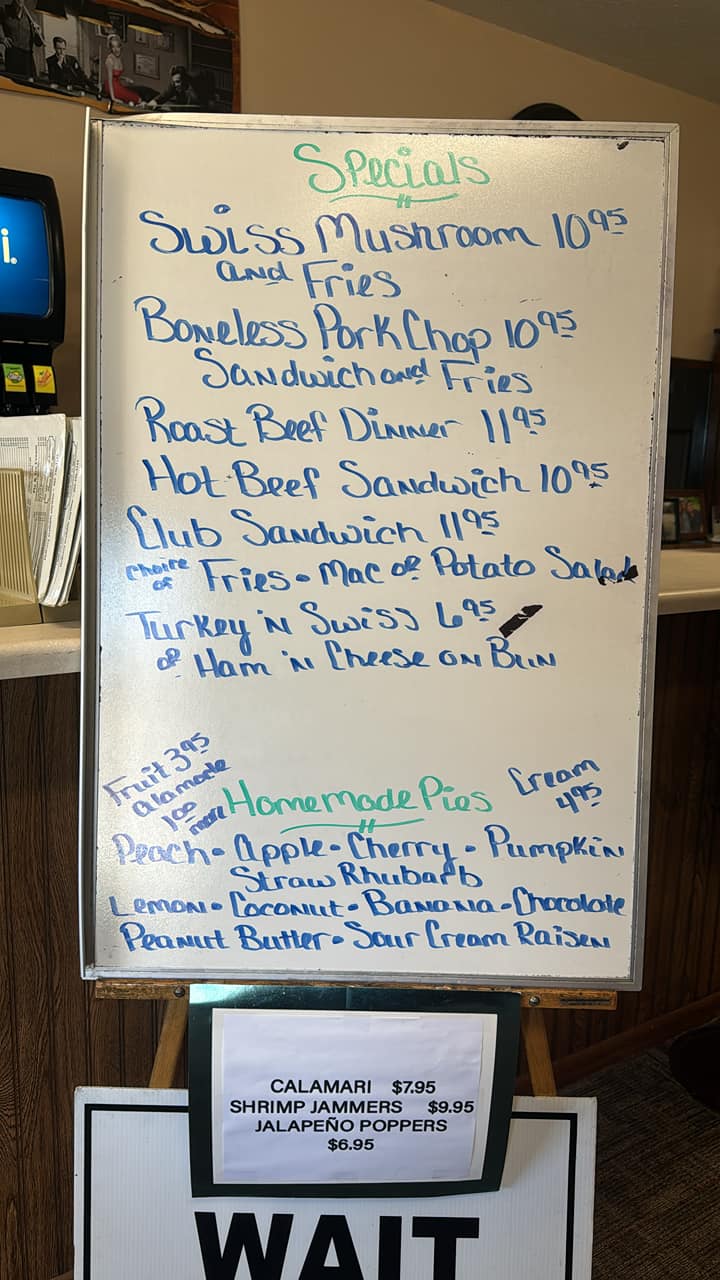 Specials
Swiss Mushroom 10 95
and Fries
Boneless Pork Chop 10 95
Sandwich and Fries
Roast Beef Dinner 11 95
Hot Beef Sandwich 10 95
Club Sandwich 11 95
choice of Fries - Mac or Potato Salad
Turkey 'N Swiss 6 95
or Ham 'N Cheese on Bun
Fruit 3 95
alamode
1 00 more
Homemade Pies
Cream
4 95
Peach - Apple - Cherry - Pumpkin
Straw Rhubarb
Lemon - Coconut - Banana - Chocolate
Peanut Butter - Sour Cream Raisen
CALAMARI $7.95
SHRIMP JAMMERS $9.95
JALAPEÑO POPPERS
$6.95
WAIT